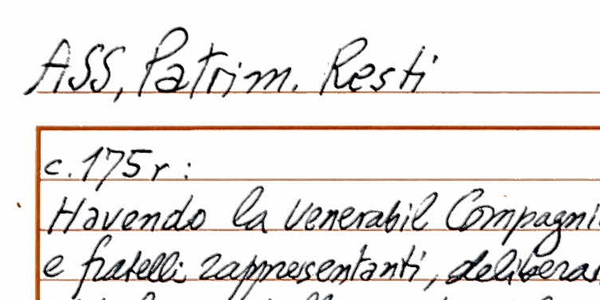 ASS, Patrim. Resti
c. 175 r :
Havendo la Venerabil Compagni
e fratelli rappresentanti, delibera